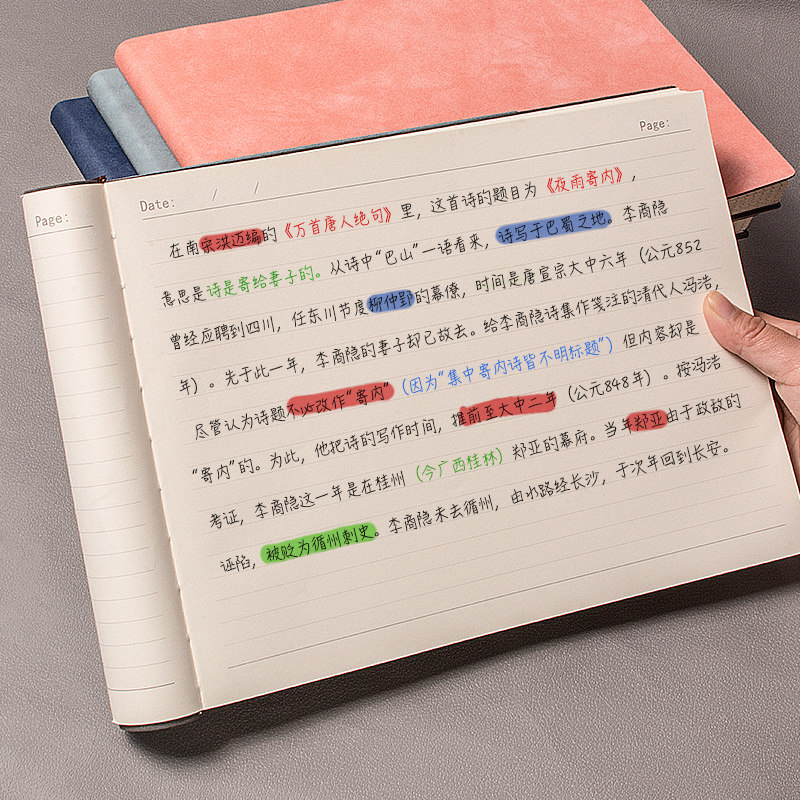 Page:
Date: / /
Page:
在南宋洪迈编的《万首唐人绝句》里，这首诗的题目为《夜雨寄内》，
意思是诗是寄给妻子的。从诗中“巴山”一语看来，诗写于巴蜀之地。李商隐
曾经应聘到四川，任东川节度柳仲郢的幕僚，时间是唐宣宗大中六年（公元852
年）。先于此一年，李商隐的妻子却已故去。给李商隐诗集作笺注的清代人冯浩，
尽管认为诗题不必改作“寄内”（因为“集中寄内诗皆不明标题”）但内容却是
“寄内”的。为此，他把诗的写作时间，推前至大中二年（公元848年）。按冯浩
考证，李商隐这一年是在桂州（今广西桂林）郑亚的幕府。当年郑亚由于政敌的
诬陷，被贬为循州刺史。李商隐未去循州，由水路经长沙，于次年回到长安。